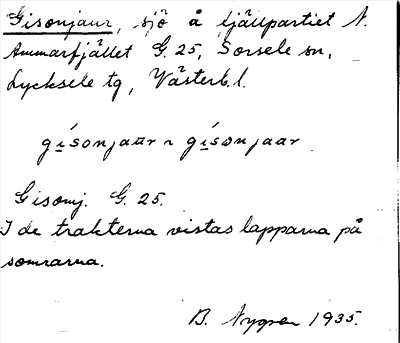 Gisonjaur, sjö å fjällpartiet N.
Ammarfjället G. 25, Sorsele sn,
Lycksele tg, Västerb. l.
gísonjaur ~ gísonjaar
Gisomj. G. 25.
I de trakterna vistas lapparna på
somrarna.
B. Nygren 1935.